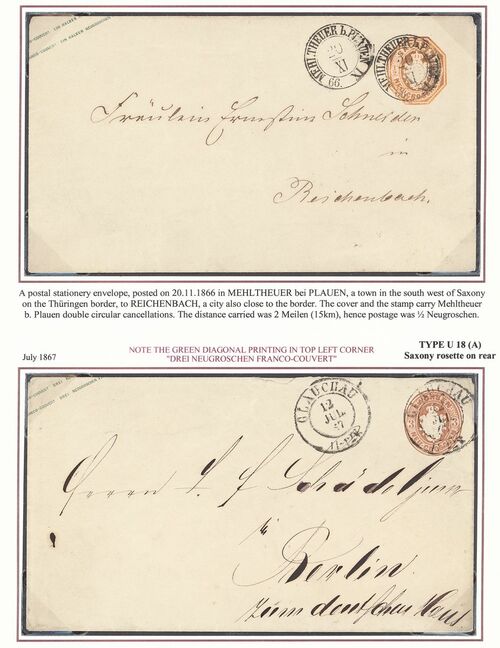 MEHLTHEUER b. PLAUEN
20
XI
66.
IX
MEHLTHEUER b. PLAUEN
Fräulein Ernstine Schneider
in
Reichenbach.
A postal stationery envelope, posted on 20.11.1866 in MEHLTHEUER bei PLAUEN, a town in the south west of Saxony
on the Thüringen border, to REICHENBACH, a city also close to the border. The cover and the stamp carry Mehltheuer
b. Plauen double circular cancellations. The distance carried was 2 Meilen (15km), hence postage was ½ Neugroschen.
July 1867
NOTE THE GREEN DIAGONAL PRINTING IN TOP LEFT CORNER
"DREI NEUGROSCHEN FRANCO-COUVERT"
TYPE U 18 (A)
Saxony rosette on rear
GLAUCHAU
12
JUL
67
11-12
Herrn
Berlin.
zum deutschen Haus